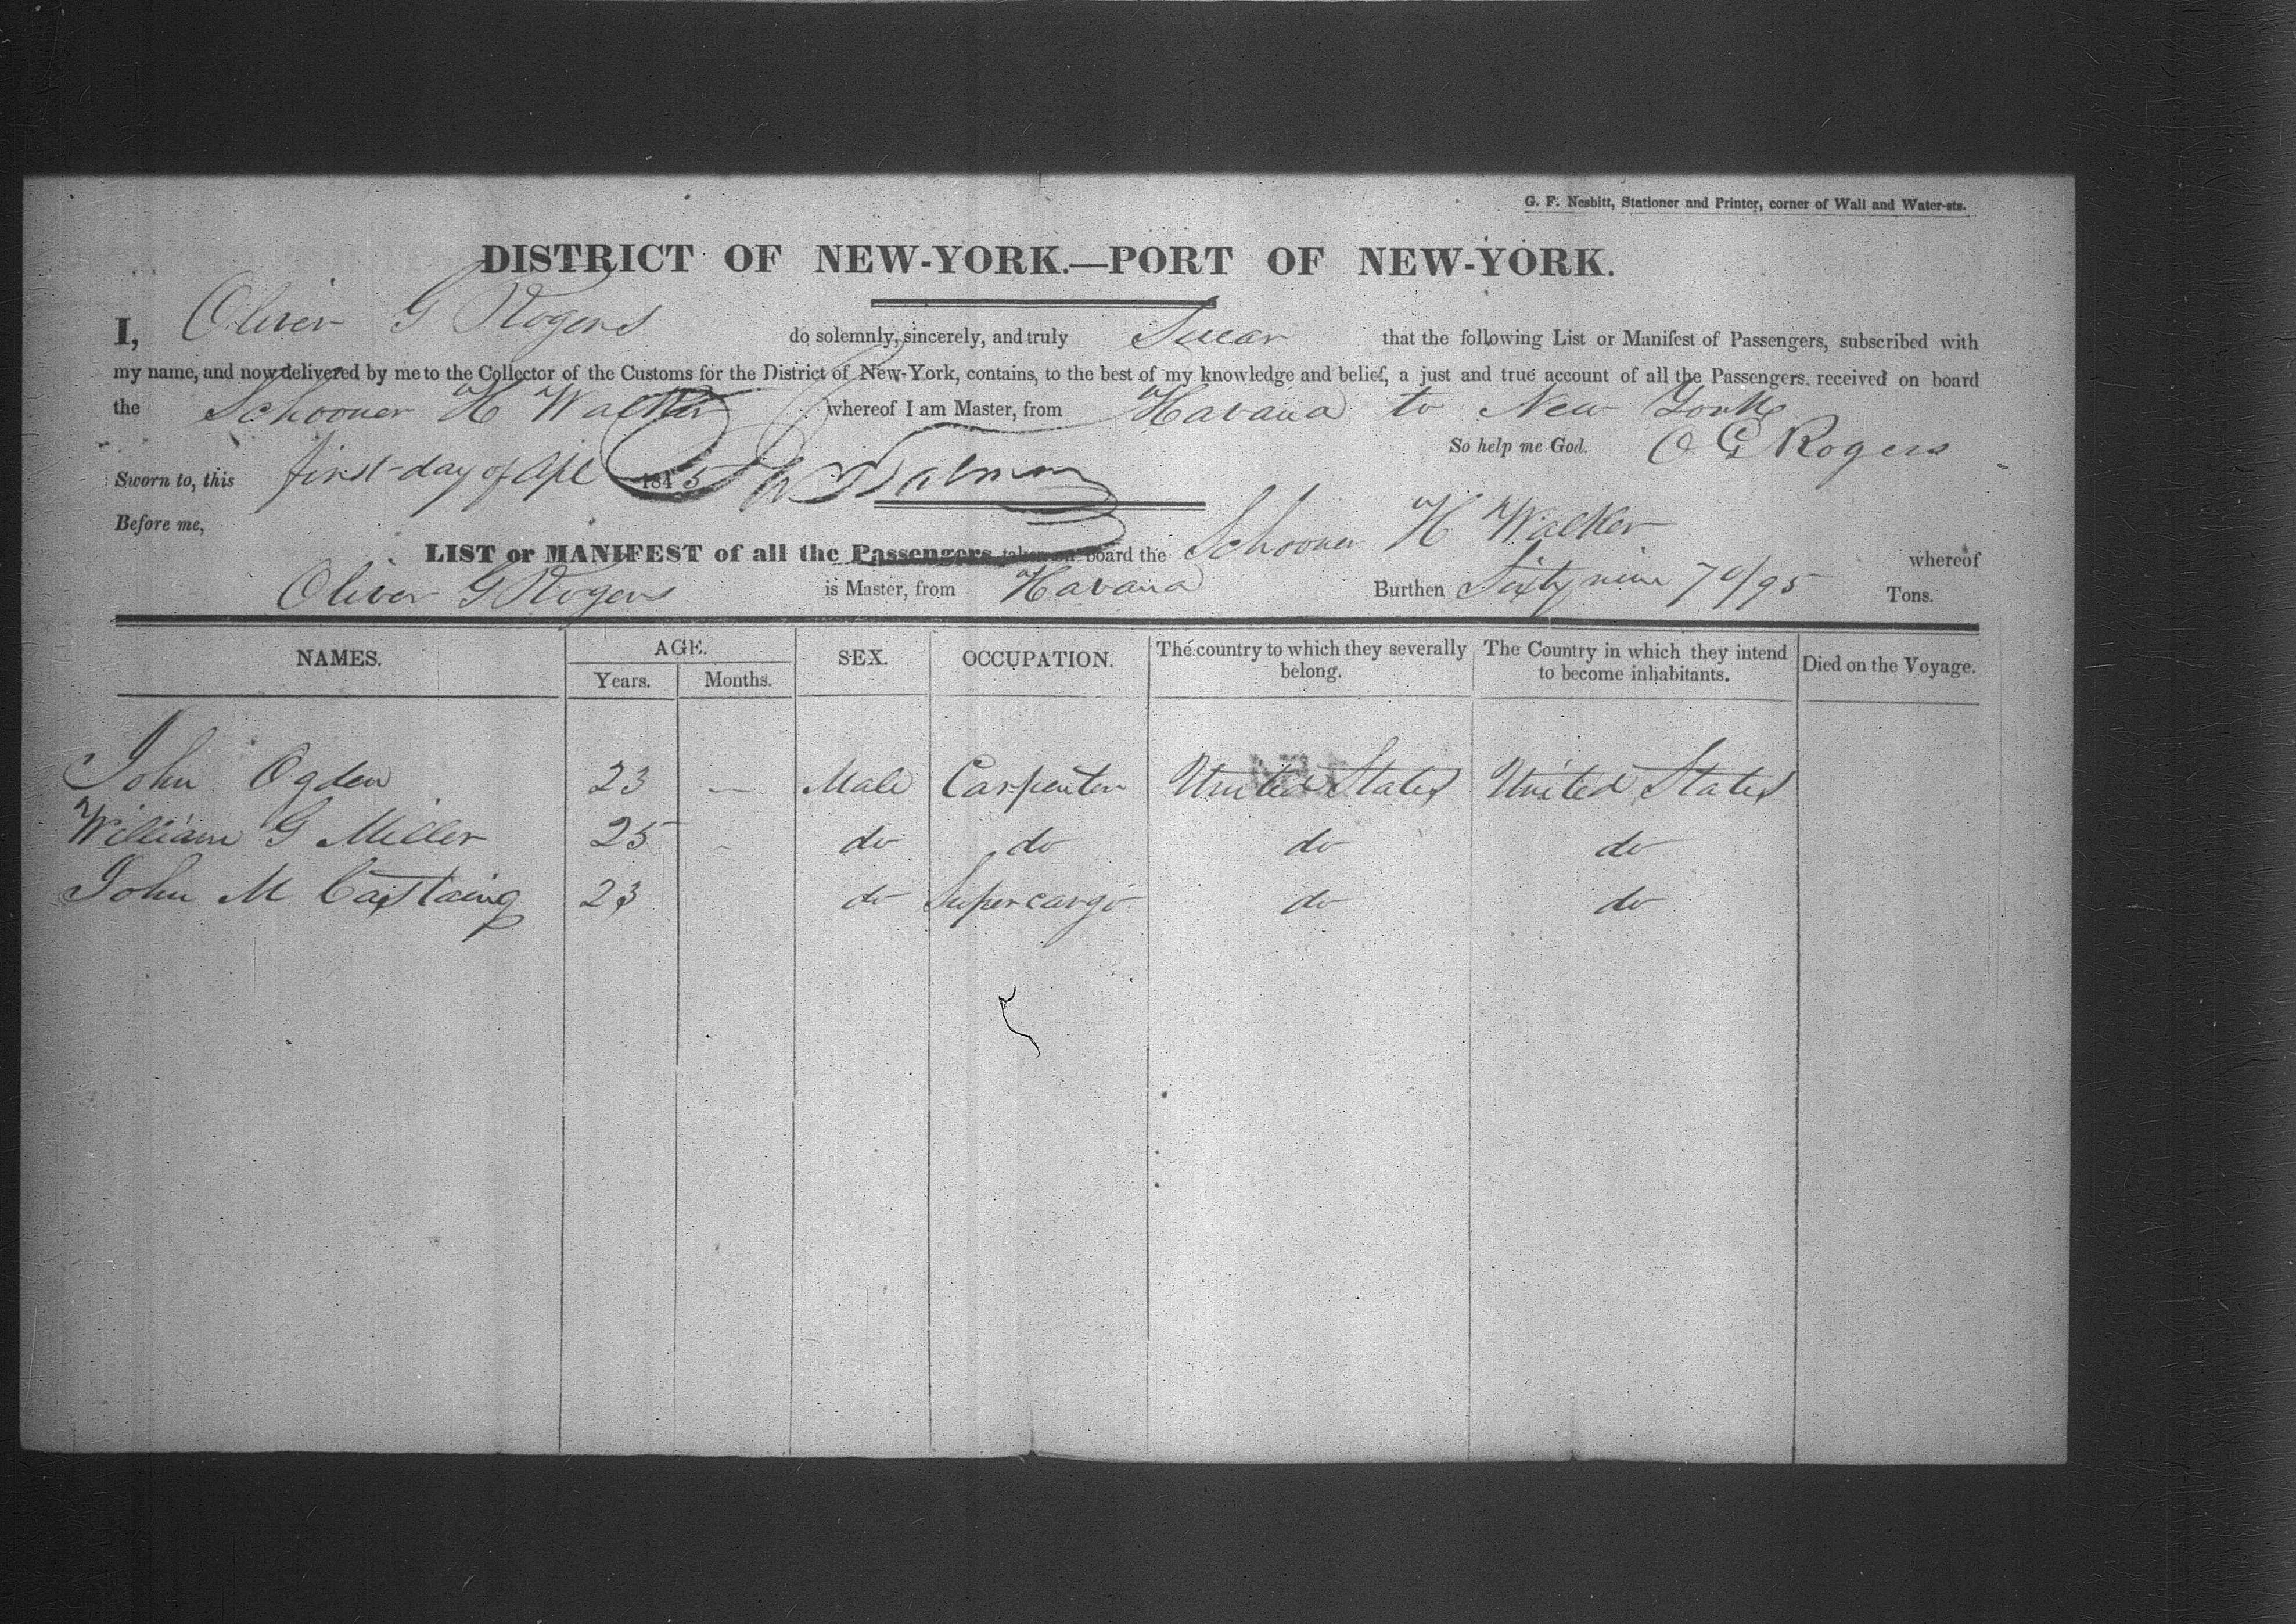 G. F. Nesbitt, Stationer and Printer, corner of Wall and Water-sts.
DISTRICT OF NEW-YORK.—PORT OF NEW-YORK.
I, Oliver G Rogers do solemnly, sincerely, and truly Swear that the following List or Manifest of Passengers, subscribed with
my name, and now delivered by me to the Collector of the Customs for the District of New-York, contains, to the best of my knowledge and belief, a just and true account of all the Passengers received on board
the Schooner H Walker whereof I am Master, from Havana to New York
So help me God. O G Rogers
Sworn to, this first day of Apl 1845
Before me,
LIST or MANIFEST of all the Passengers taken on board the Schooner H Walker whereof
Oliver G Rogers is Master, from Havana Burthen Sixty nine 70/95 Tons.
NAMES. AGE. SEX. OCCUPATION. The country to which they severally belong. The Country in which they intend to become inhabitants. Died on the Voyage.
Years. Months.
John Ogden 23 — Male Carpenter United States United States
William G Miller 25 - do do do do
John M Castaing 23 do Supercargo do do